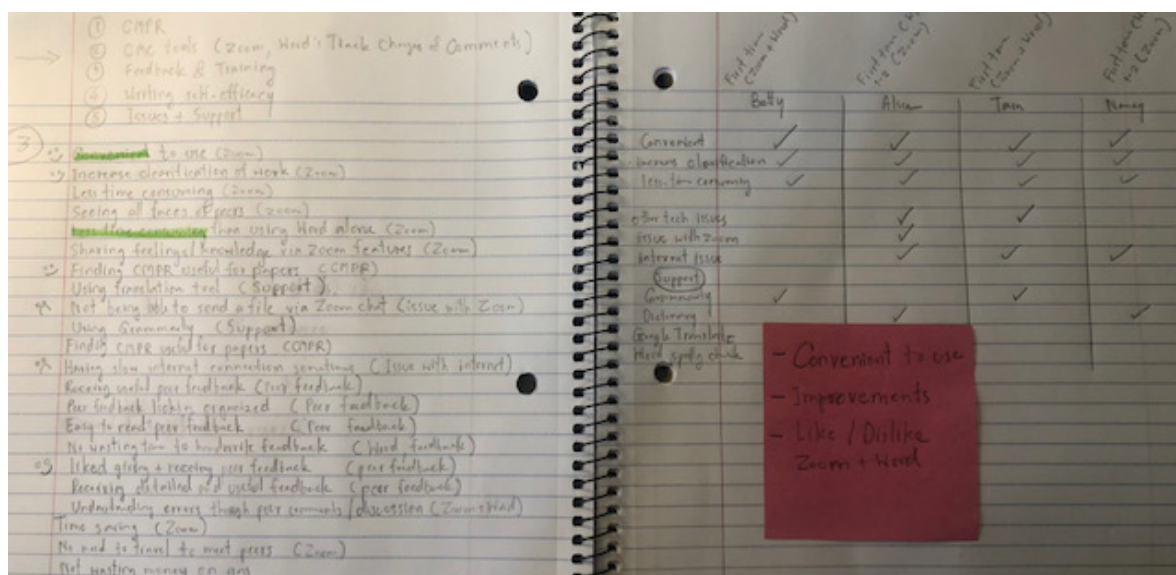 ① CMPR
② CMC tools (Zoom, Word's Track Changes & Comments)
③ Feedback & Training
④ Writing self-efficacy
⑤ Issues + Support
③
Convenient to use (Zoom)
Increase clarification of work (Zoom)
Less time consuming (Zoom)
Seeing all faces of peers (Zoom)
Less time consuming than using Word alone (Zoom)
Sharing feelings/knowledge via Zoom features (Zoom)
Finding CMPR useful for papers (CMPR)
Using translation tool (Support)
Not being able to send a file via Zoom chat (issue with Zoom)
Using Grammarly (Support)
Finding CMPR useful for papers (CMPR)
Having slow internet connection sometimes (Issue with internet)
Receiving useful peer feedback (Peer feedback)
Peer feedback organized (Peer feedback)
Easy to read peer feedback (Peer feedback)
No wasting time to handwrite feedback (Word feedback)
Liked giving + receiving peer feedback (peer feedback)
Receiving detailed and useful feedback (peer feedback)
Understanding errors through peer comments/discussion (Zoom + Word)
Time saving (Zoom)
No need to travel to meet peers (Zoom)
Not wasting money on gas
First time (Zoom + Word)
First time (Zoom)
First time (Zoom + Word)
First time (Zoom)
Betty Alisa Tarn Nancy
Convenient ✓ ✓ ✓ ✓
increase clarification ✓ ✓ ✓ ✓
less-time consuming ✓ ✓ ✓ ✓
other tech issues ✓ ✓
issue with zoom ✓
internet issue ✓ ✓ ✓
Support
Grammarly ✓ ✓
Dictionary ✓ ✓
Google Translate
Word spelling check
- Convenient to use
- Improvements
- Like / Dislike
Zoom + Word